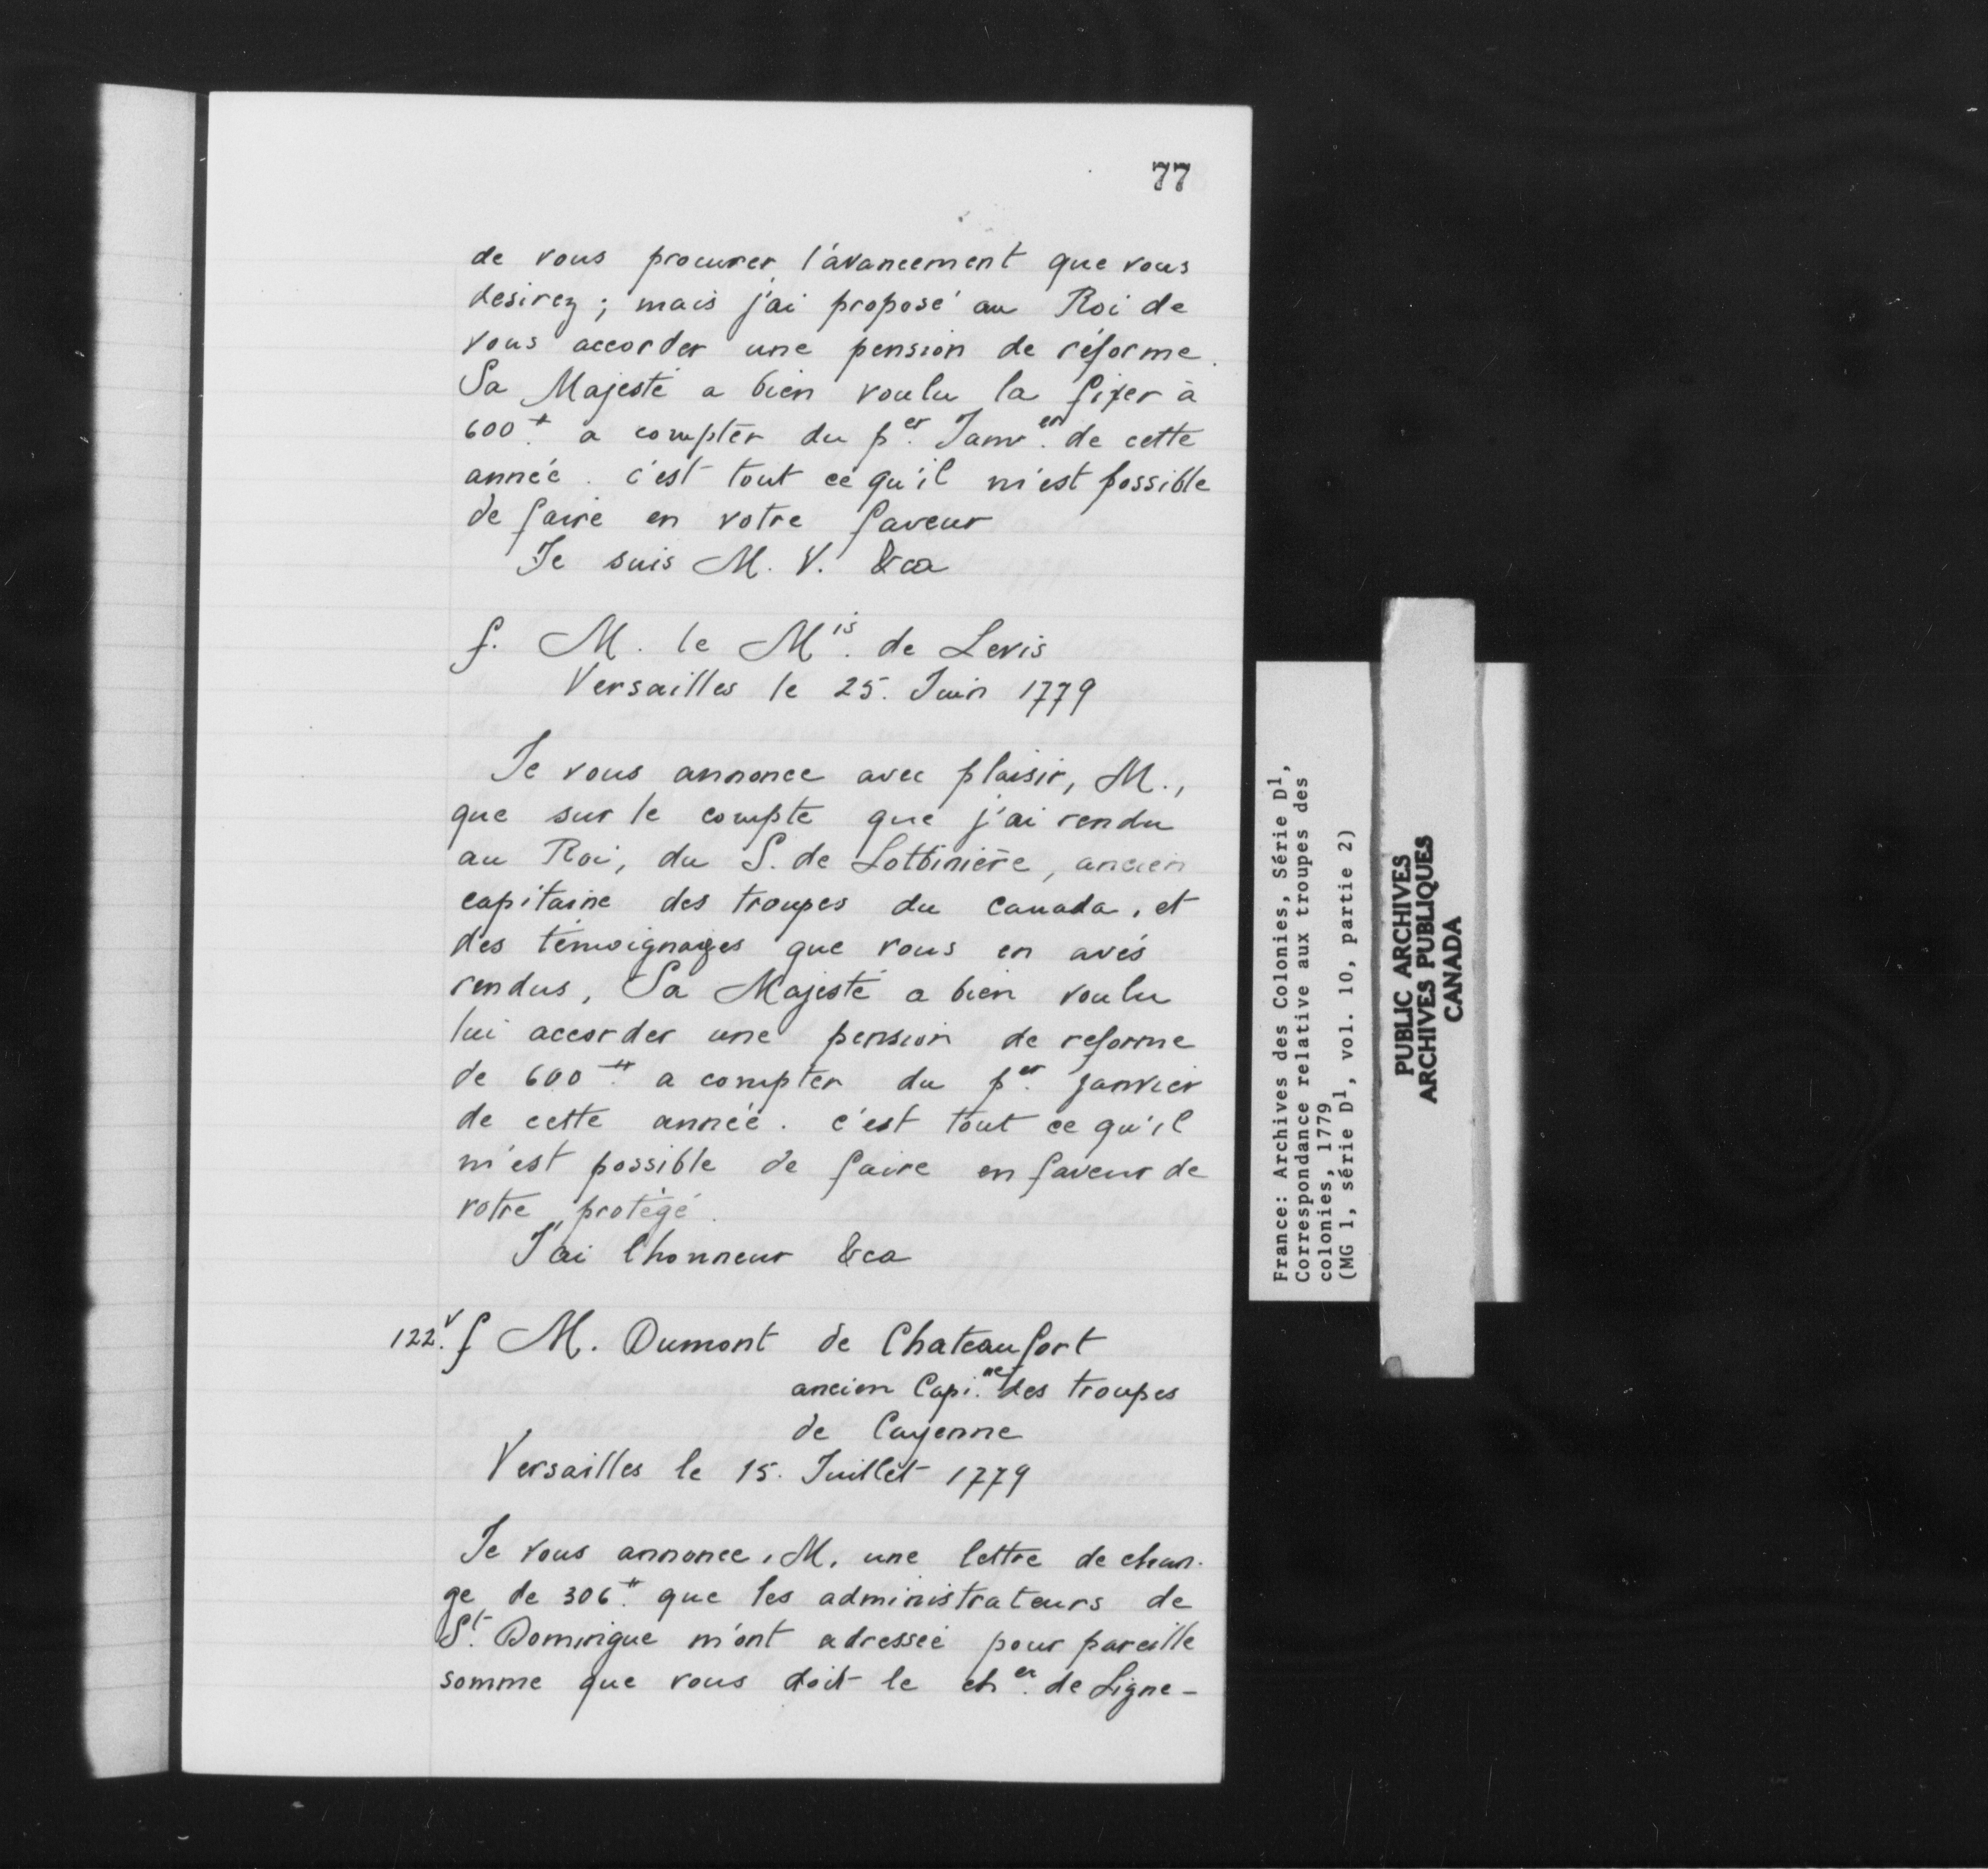 77
de vous procurer l'avancement que vous
desirez ; mais j'ai proposé au Roi de
vous accorder une pension de réforme.
Sa Majesté a bien voulu la fixer à
600.ᵗ a compter du p.er Janv.er de cette
année. c'est tout ce qu'il m'est possible
de faire en votre faveur
Je suis M. V. &ca
f. M. le M.is de Levis
Versailles le 25. Juin 1779
Je vous annonce avec plaisir, M.,
que sur le compte que j'ai rendu
au Roi, du S. de Lotbinière, ancien
capitaine des troupes du Canada, et
des témoignages que vous en avés
rendus, Sa Majesté a bien voulu
lui accorder une pension de reforme
de 600.tt a compter du p.er janvier
de cette année. c'est tout ce qu'il
m'est possible de faire en faveur de
votre protégé.
J'ai l'honneur &ca
122.v f M. Dumont de Chateaufort
ancien Capi.ne des troupes
de Cayenne
Versailles le 15. Juillet 1779
Je vous annonce, M. une lettre de chan-
ge de 306.tt que les administrateurs de
S.t Domingue m'ont adressée pour pareille
somme que vous doit le ch.er de Ligne-
France: Archives des Colonies, Série D1,
Correspondance relative aux troupes des
colonies, 1779
(MG 1, série D1, vol. 10, partie 2)
PUBLIC ARCHIVES
ARCHIVES PUBLIQUES
CANADA